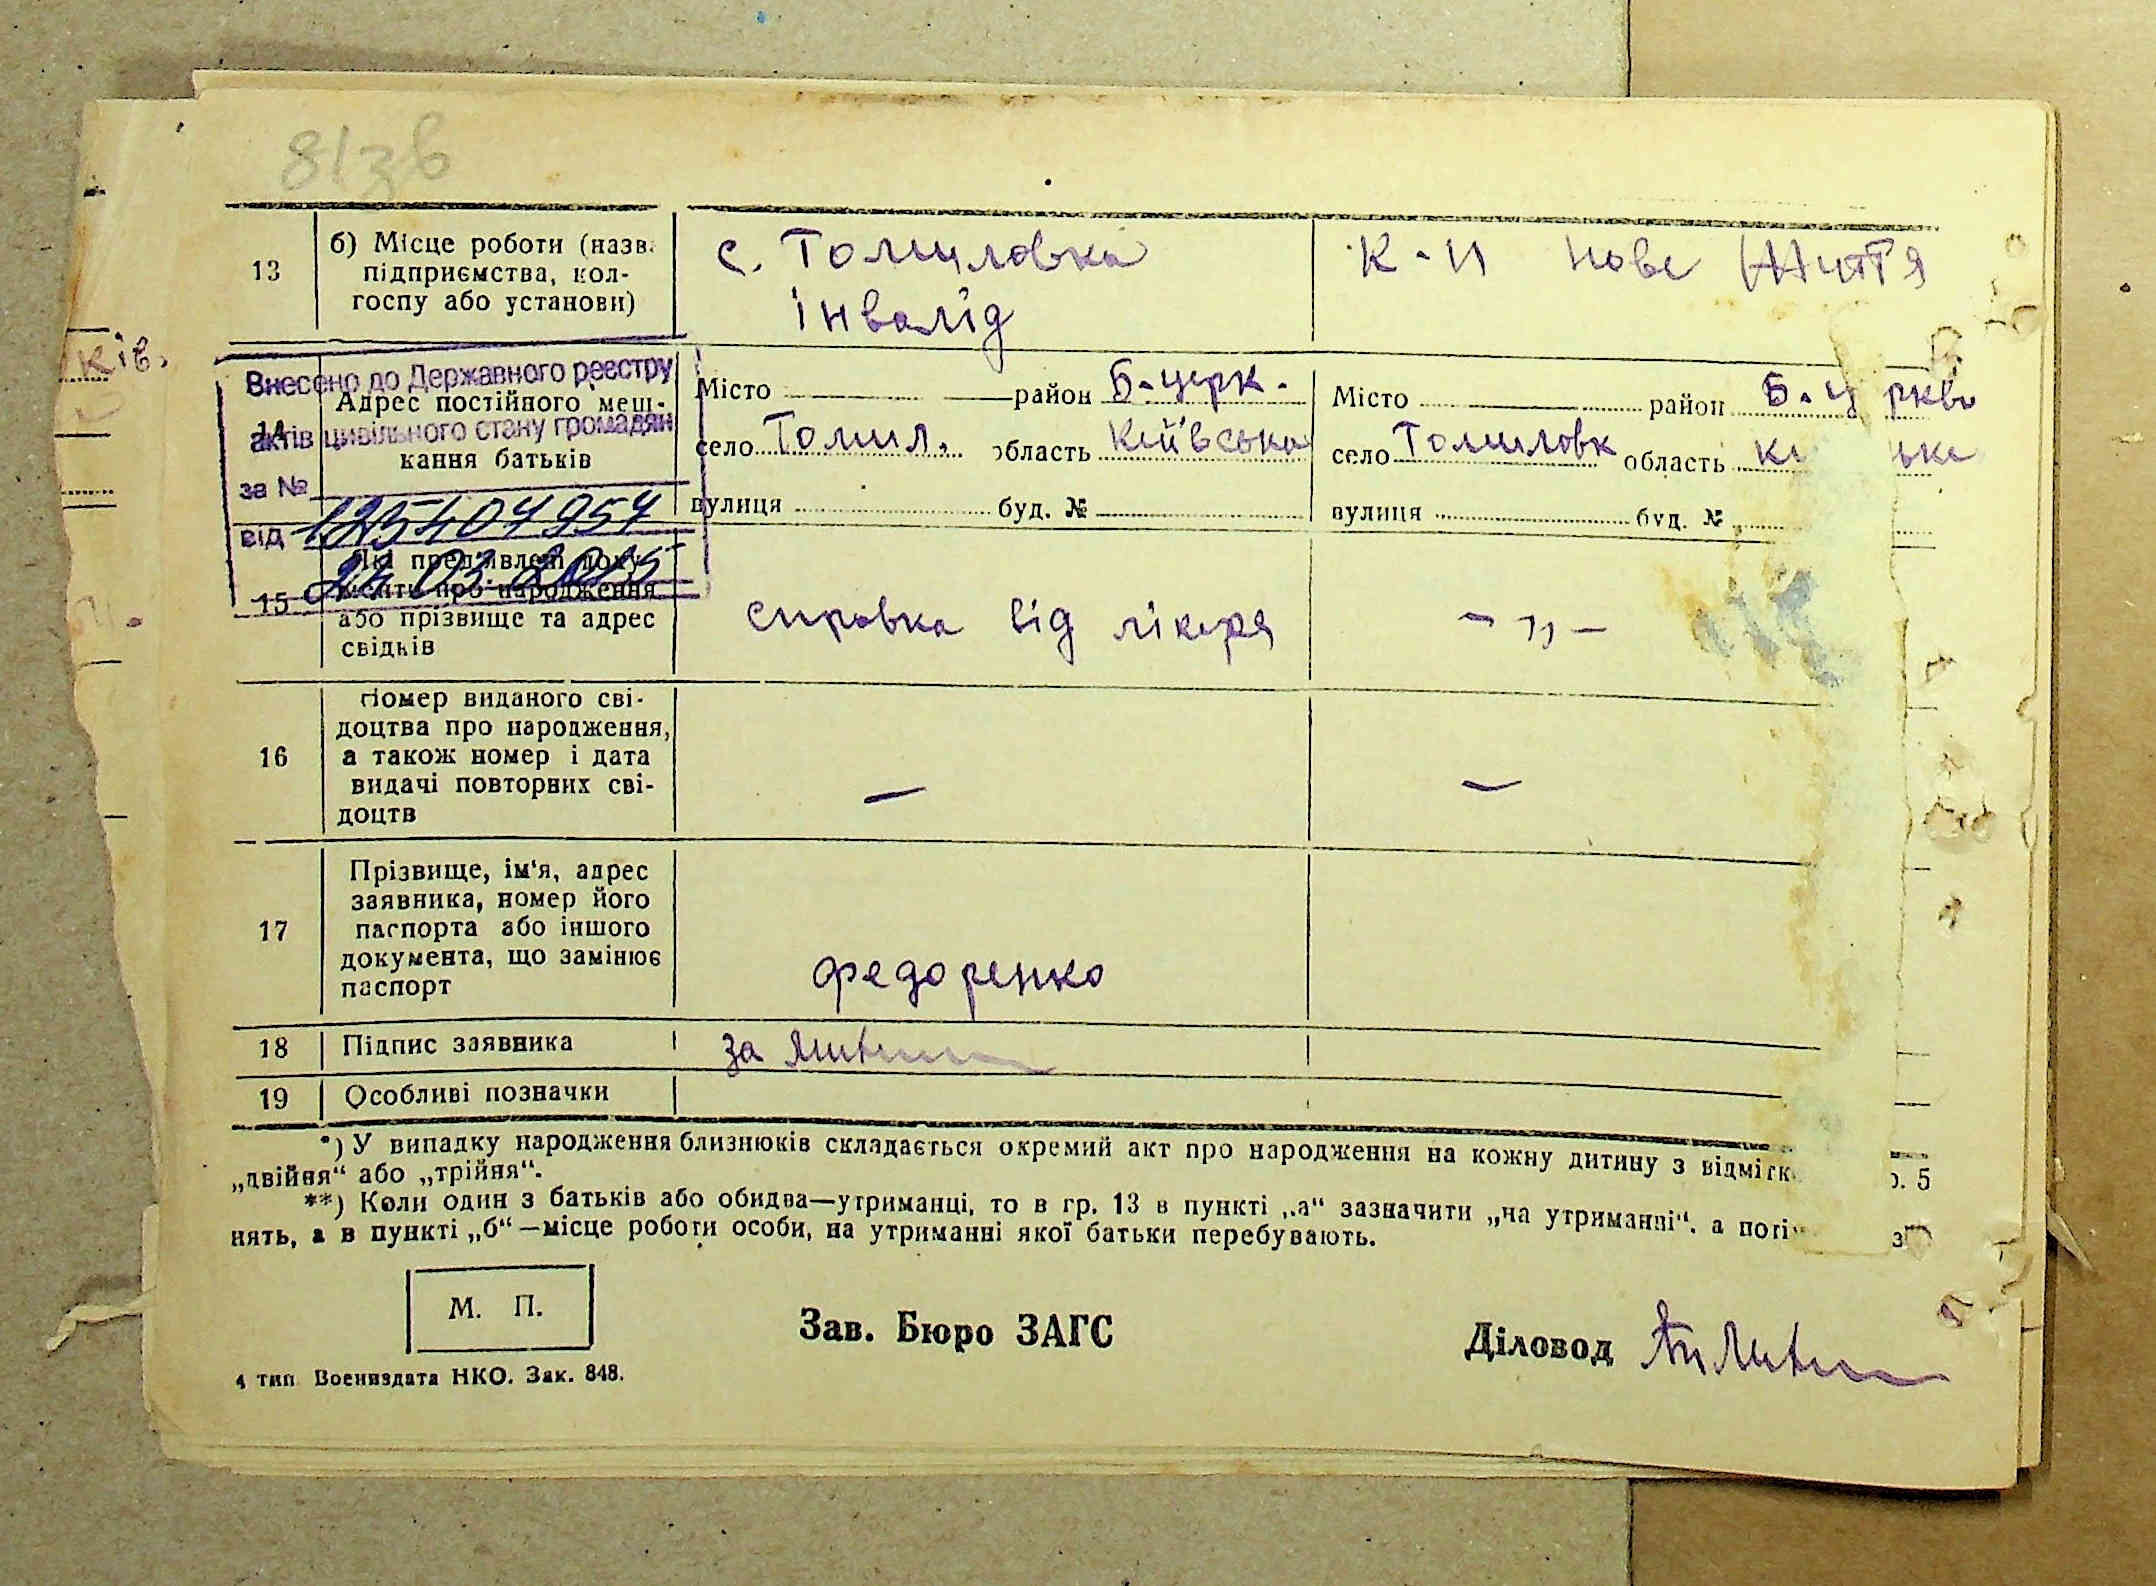 81зв
13
б) Місце роботи (назв.
підприємства, кол-
госпу або установи)
с. Томиловка
інвалід
к-п нове Життя
ків.
Внесено до Державного реєстру
актів цивільного стану громадян
за №
125404954
від
24.03.2015
14
Адрес постійного меш-
кання батьків
Місто район Б-церк.
село Томил. область Київська
вулиця буд. №
Місто район Б.ц ркви
село Томиловк область
вулиця буд. №
15
Які пред'явлені доку-
менти про народження
або прізвище та адрес
свідків
справка від лікаря
– „ –
16
Номер виданого сві-
доцтва про народження,
а також номер і дата
видачі повторних сві-
доцтв
–
–
17
Прізвище, ім'я, адрес
заявника, номер його
паспорта або іншого
документа, що замінює
паспорт
Федоренко
18
Підпис заявника
за
19
Особливі позначки
*) У випадку народження близнюків складається окремий акт про народження на кожну дитину з відмітк р. 5
„двійня“ або „трійня“.
**) Коли один з батьків або обидва—утриманці, то в гр. 13 в пункті „а“ зазначити „на утриманні“, а поті з
нять, а в пункті „б“—місце роботи особи, на утриманні якої батьки перебувають.
М. П.
Зав. Бюро ЗАГС
Діловод
4 тип Воениздата НКО. Зак. 848.